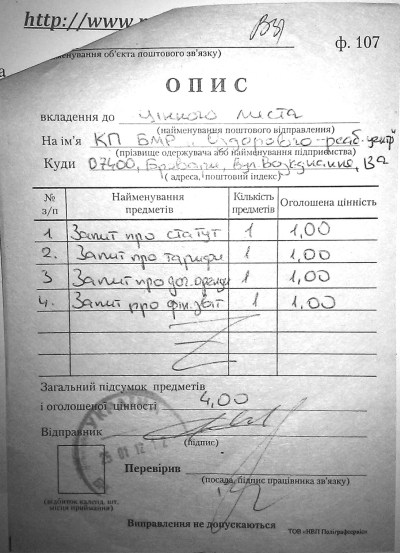 http://www.
ф. 107
(найменування об'єкта поштового зв'язку)
ОПИС
вкладення до цінного листа
(найменування поштового відправлення)
На ім'я КП БМР "Оздоровчо-реаб. центр"
(прізвище одержувача або найменування підприємства)
Куди 07400, Бровари, вул. Возз'єднання,
(адреса, поштовий індекс)
№ з/п Найменування предметів Кількість предметів Оголошена цінність
1 Запит про статут 1 1,00
2. Запит про тарифи 1 1,00
3 Запит про дог. оренди 1 1,00
4. Запит про фін. звіт 1 1,00
Загальний підсумок предметів
і оголошеної цінності 4,00
Відправник
(підпис)
25 01 12
Перевірив
(посада, підпис працівника зв'язку)
(відбиток календ. шт.
місця приймання)
Виправлення не допускаються
ТОВ «НВП Поліграфсервіс»